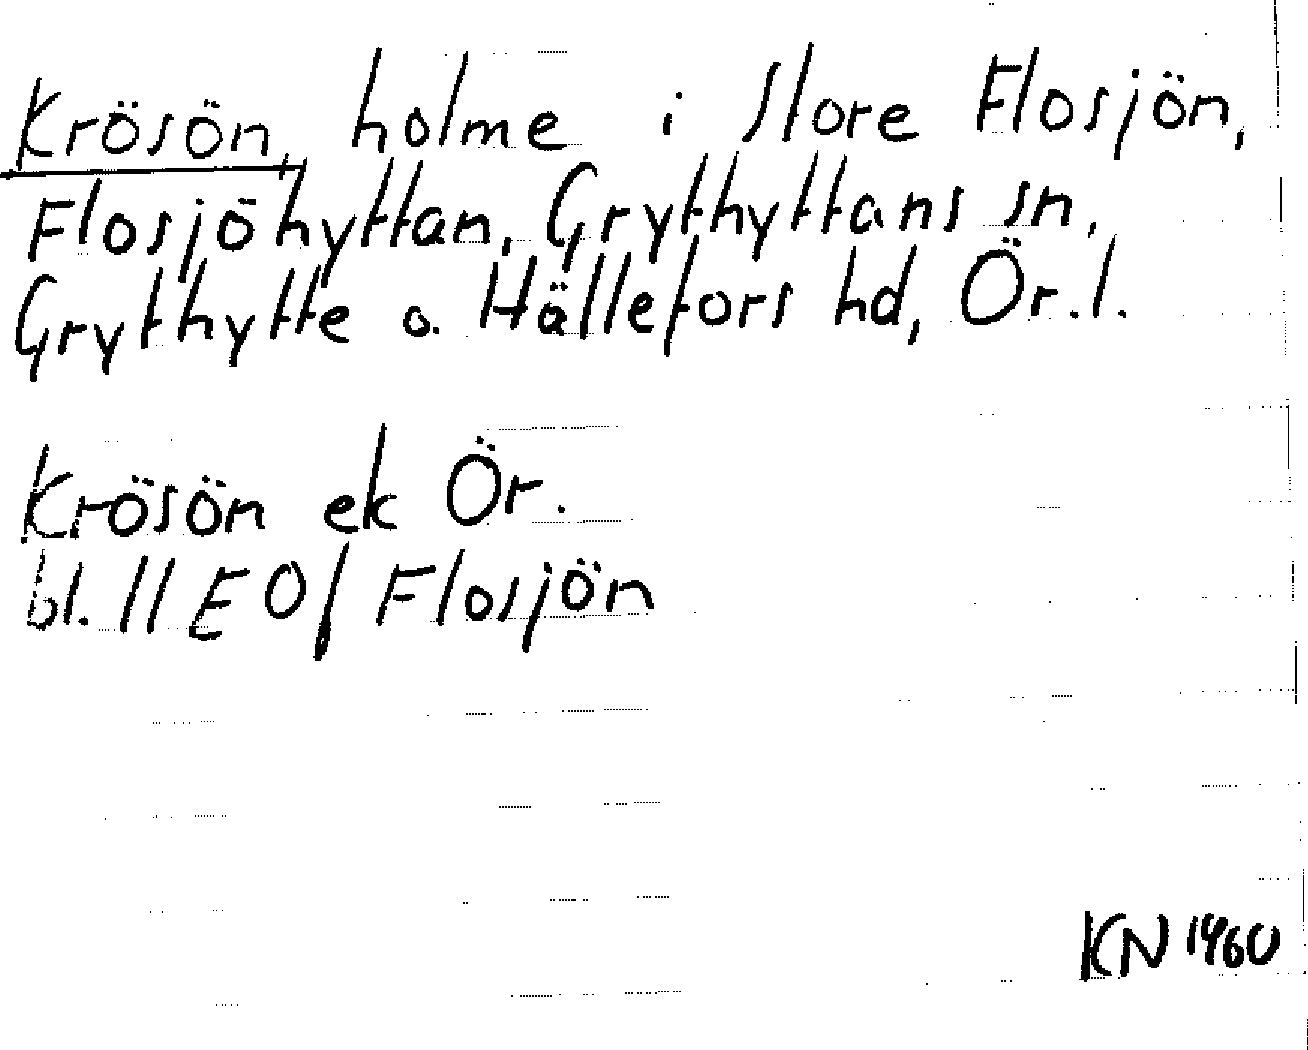 Krösön, holme i Store Flosjön,
Flosjöhyttan, Grythyttans sn,
Grythytte o. Hällefors hd, Ör.l.
Krösön ek Ör.
bl. 11 E Of Flosjön
KN 1960